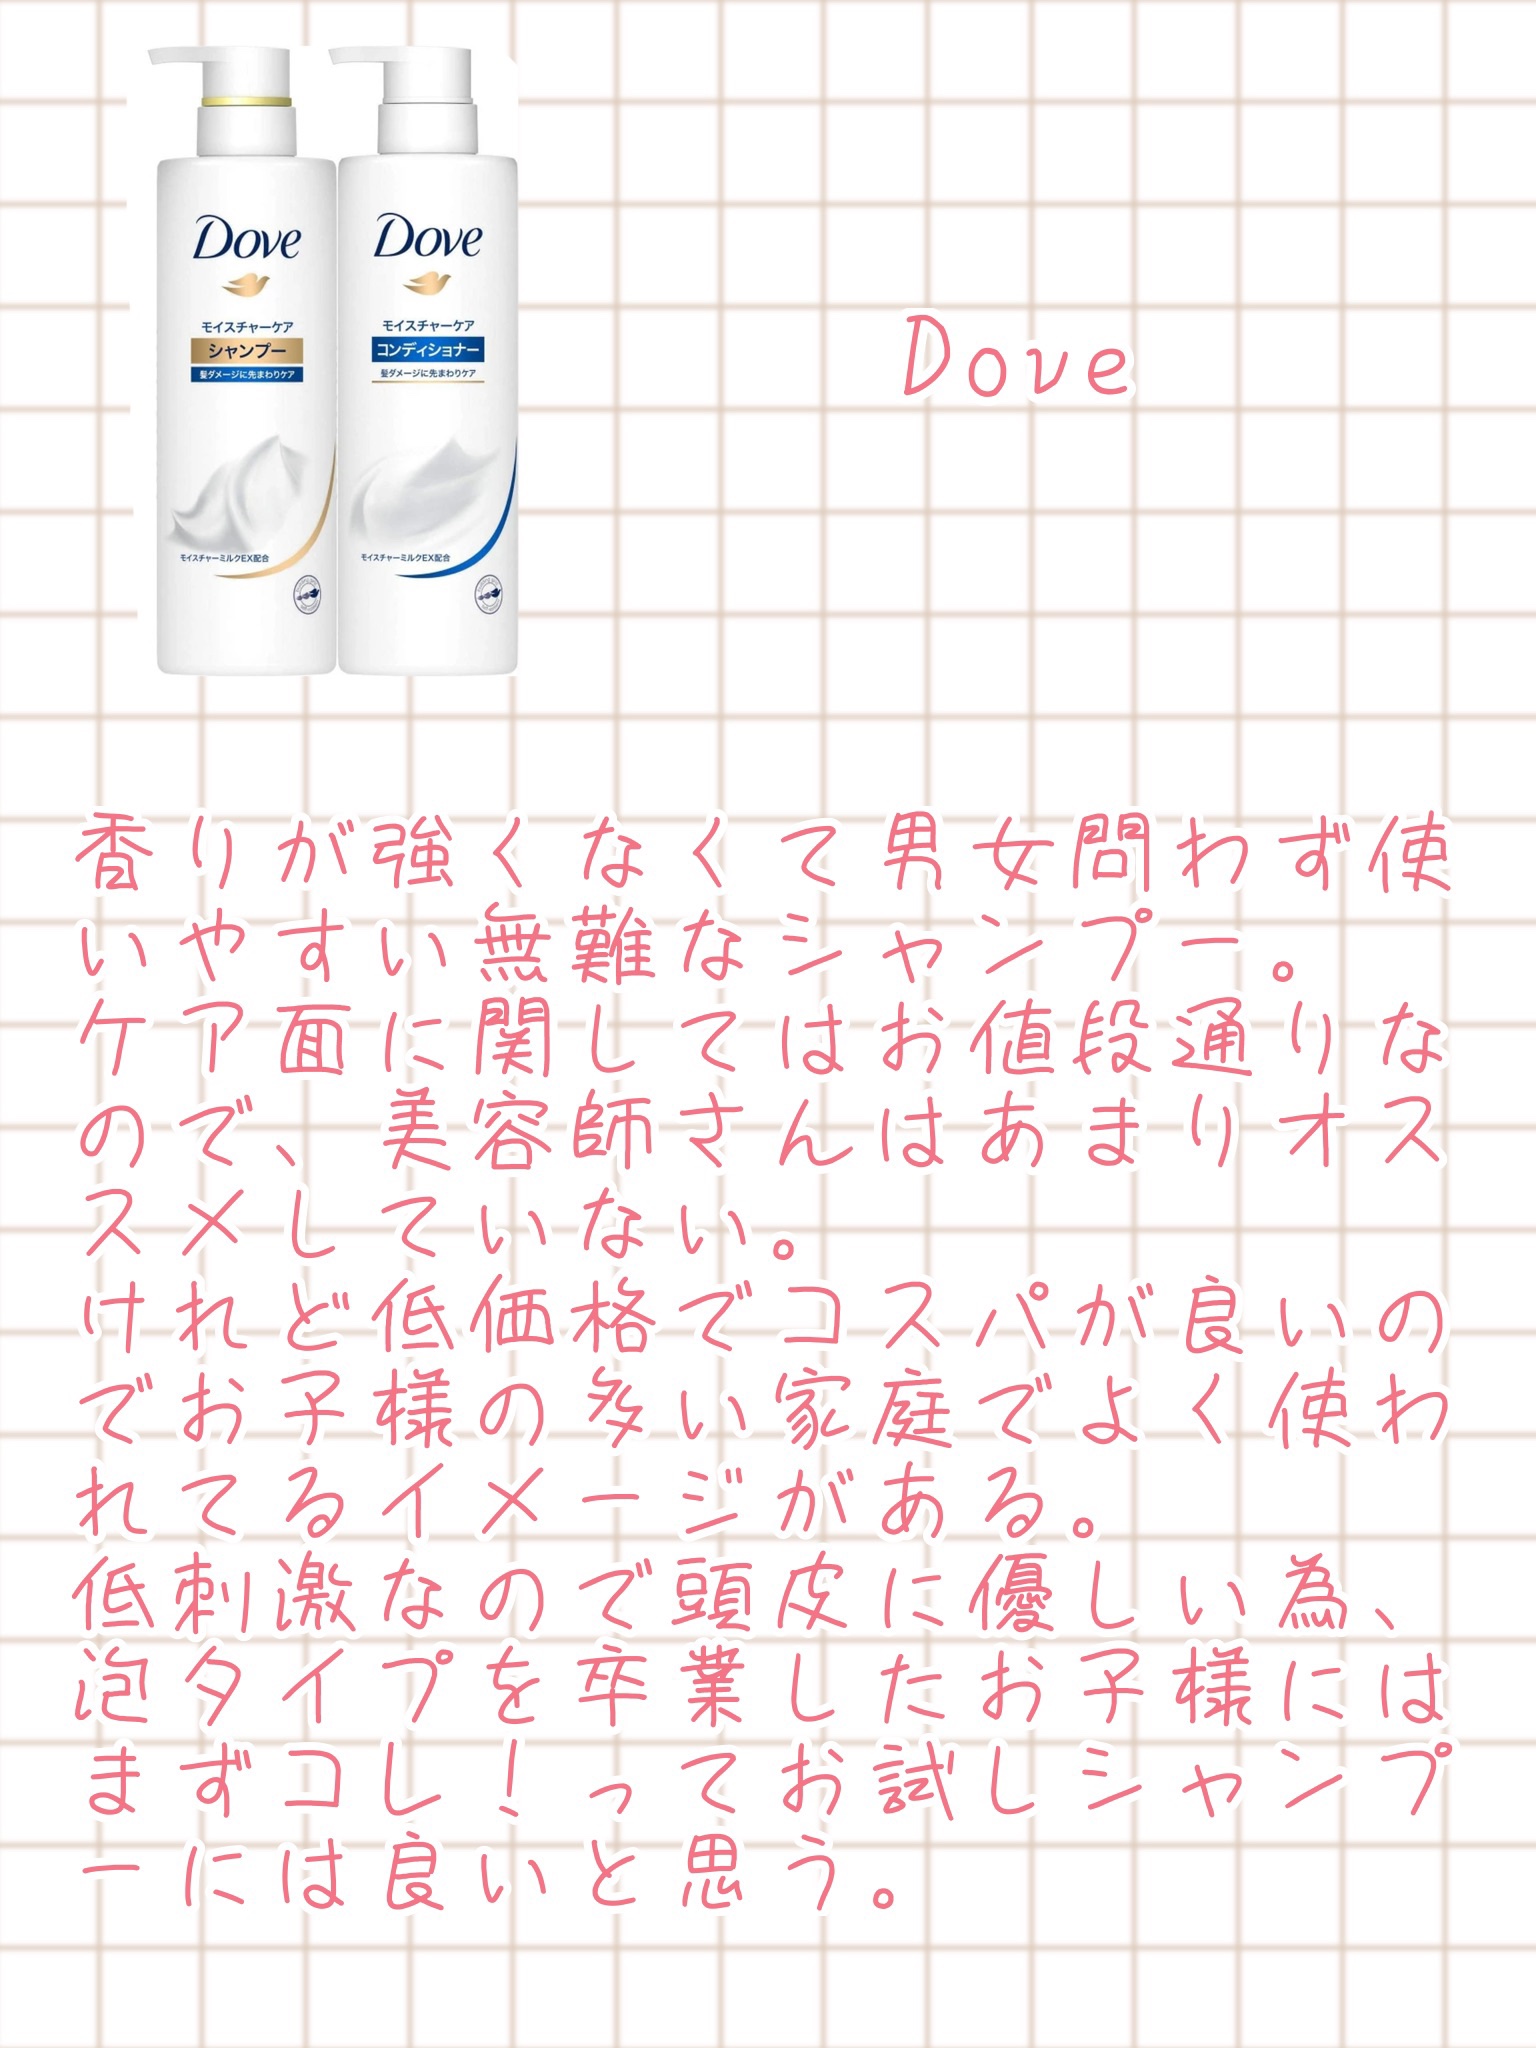 Dove
モイスチャーケア
シャンプー
髪ダメージに先まわりケア
モイスチャーミルクEX配合
Dove
モイスチャーケア
コンディショナー
髪ダメージに先まわりケア
モイスチャーミルクEX配合
Dove
香りが強くなくて男女問わず使
いやすい無難なシャンプー。
ケア面に関してはお値段通りな
ので、美容師さんはあまりオス
スメしていない。
けれど低価格でコスパが良いの
でお子様の多い家庭でよく使わ
れてるイメージがある。
低刺激なので頭皮に優しい為、
泡タイプを卒業したお子様には
まずコレ！ってお試しシャンプ
ーには良いと思う。